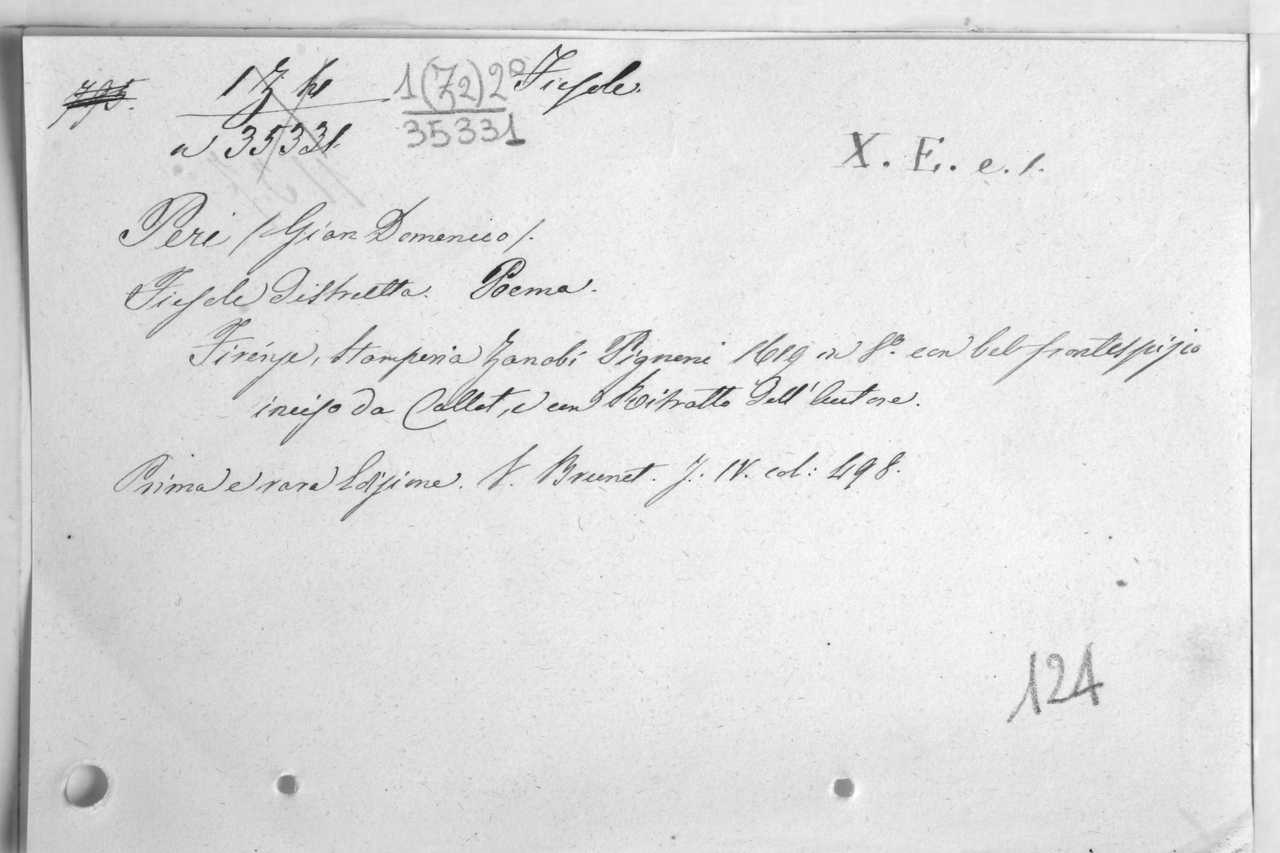 1(Z2)2º Fiesole.
35331
a 35331.
X. E. e. 1.
Peri (Gian Domenico).
Fiesole Distrutta. Poema.
Firenze, Stamperia Zanobi Pignoni 1619 in 8º. con bel frontespizio
inciso da Callot, e con Ritratto dell'Autore.
Prima e rara Edizione. V. Brunet. T. IV. col: 498.
124